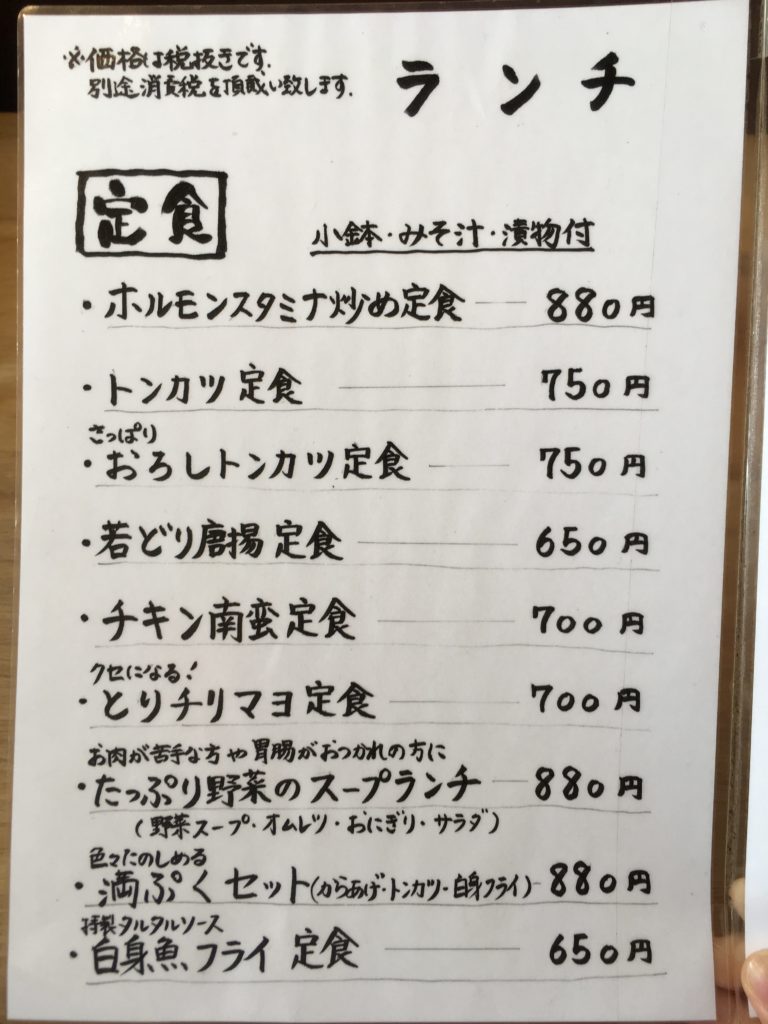 ※価格は税抜きです.
別途消費税を頂戴い致します.
ランチ
定食
小鉢・みそ汁・漬物付
・ホルモンスタミナ炒め定食 880円
・トンカツ定食 750円
さっぱり
・おろしトンカツ定食 750円
・若どり唐揚定食 650円
・チキン南蛮定食 700円
クセになる!
・とりチリマヨ定食 700円
お肉が苦手な方や胃腸がおつかれの方に
・たっぷり野菜のスープランチ 880円
(野菜スープ・オムレツ・おにぎり・サラダ)
色々たのしめる
・満ぷくセット(からあげ・トンカツ・白身フライ) 880円
特製タルタルソース
・白身魚フライ定食 650円